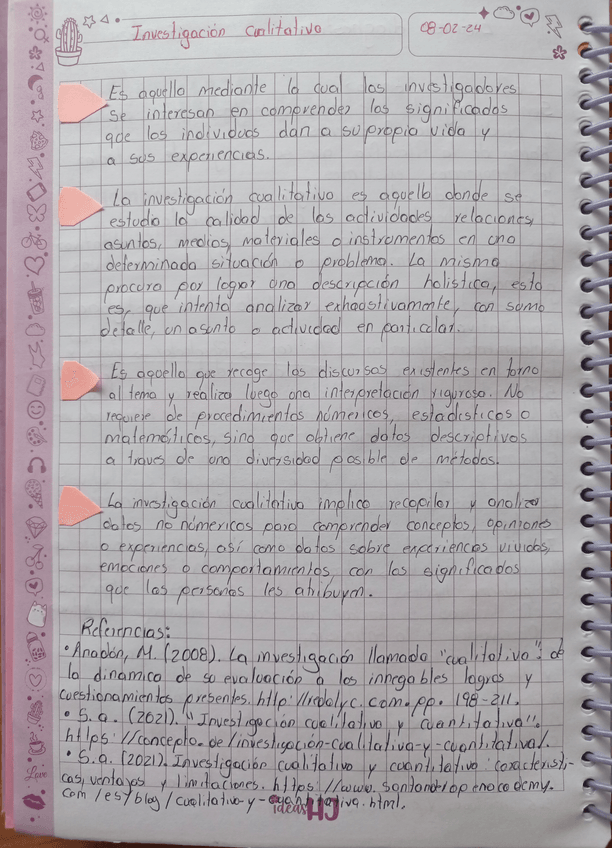 Investigación Cualitativa
08-02-24
Es aquella mediante la cual los investigadores
se interesan en comprender los significados
que los individuos dan a su propia vida y
a sus experiencias.
La investigación cualitativa es aquella donde se
estudia la calidad de las actividades relaciones,
asuntos, medios, materiales o instrumentos en una
determinada situación o problema. La misma
procura por lograr una descripción holística, esto
es, que intenta analizar exhaustivamente, con sumo
detalle, un asunto o actividad en particular.
Es aquella que recoge los discursos existentes en torno
al tema y realiza luego una interpretación rigurosa. No
requiere de procedimientos númericos, estadísticos o
matemáticos, sino que obtiene datos descriptivos
a través de una diversidad posible de métodos.
La investigación cualitativa implica recopilar y analizar
datos no númericos para comprender conceptos, opiniones
o experiencias, así como datos sobre experiencias vividas,
emociones o comportamientos, con los significados
que las personas les atribuyen.
Referencias:
• Anadón, M. (2008). La investigación llamada "cualitativa": de
la dinamica de su evaluación a los innegables logros y
cuestionamientos presentes. http://redalyc.com.pp. 198-211.
• S.a. (2021). "Investigación cualitativa y cuantitativa".
https://concepto.de/investigación-cualitativa-y-cuantitativa/.
• S.a. (2021). Investigación cualitativa y cuantitativa: característi-
cas, ventajas y limitaciones. https://www. santanderopenacademy.
com/es/blog/cualitativa-y-cuantitativa.html.
Love
ideas HJ